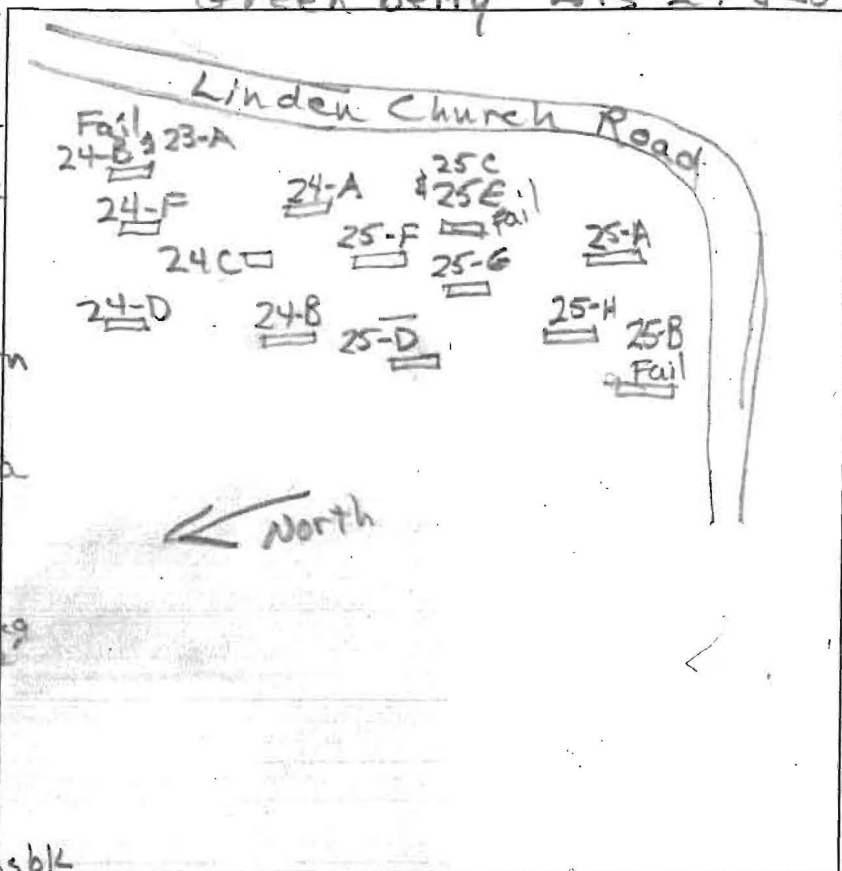 Linden Church Road
Fail
24-B & 23-A
24-F
24-A
25C
& 25E
Fail
24C
25-F
25-G
25-A
24-D
24-B
25-D
25-H
25-B
Fail
North